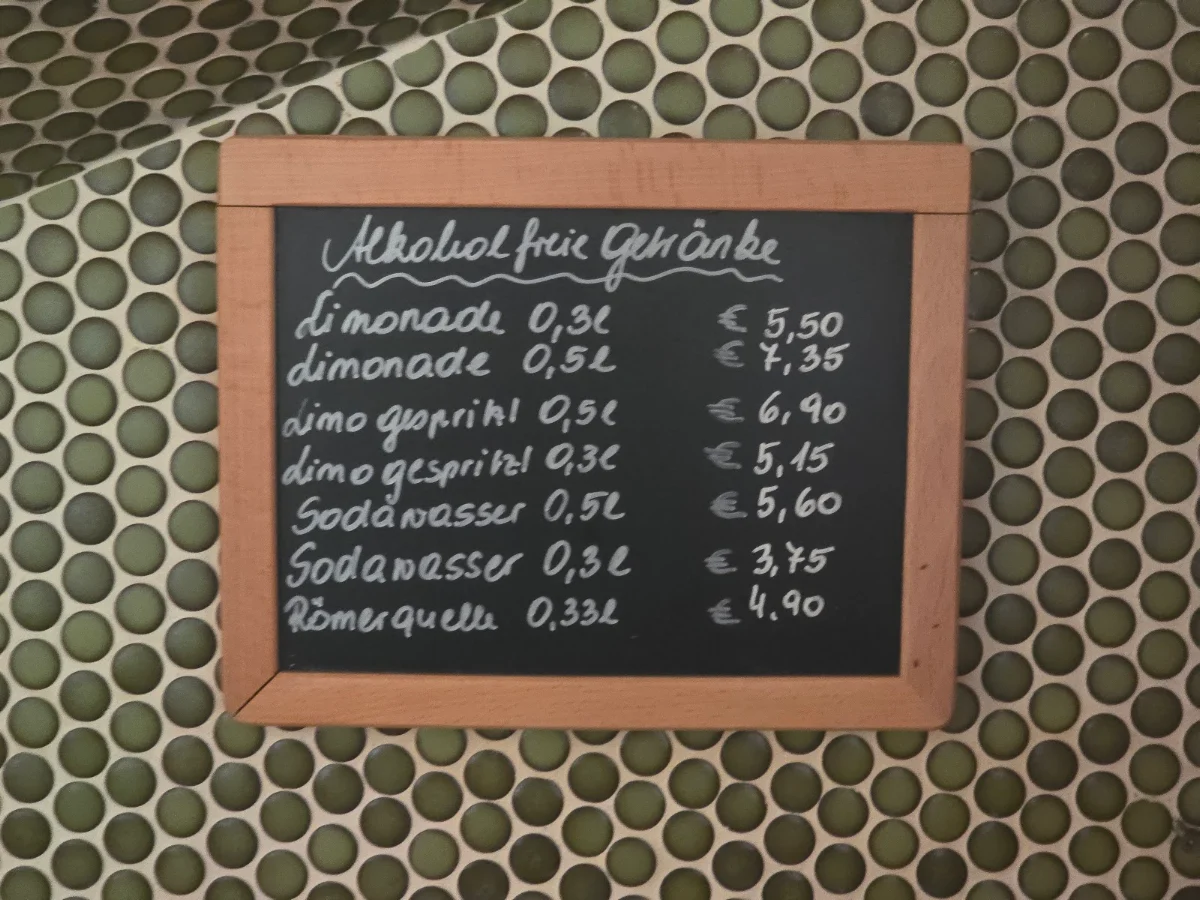 Alkoholfreie Getränke
Limonade 0,3l € 5,50
Limonade 0,5l € 7,35
Limo gespritzt 0,5l € 6,90
Limo gespritzt 0,3l € 5,15
Sodawasser 0,5l € 5,60
Sodawasser 0,3l € 3,75
Römerquelle 0,33l € 4.90